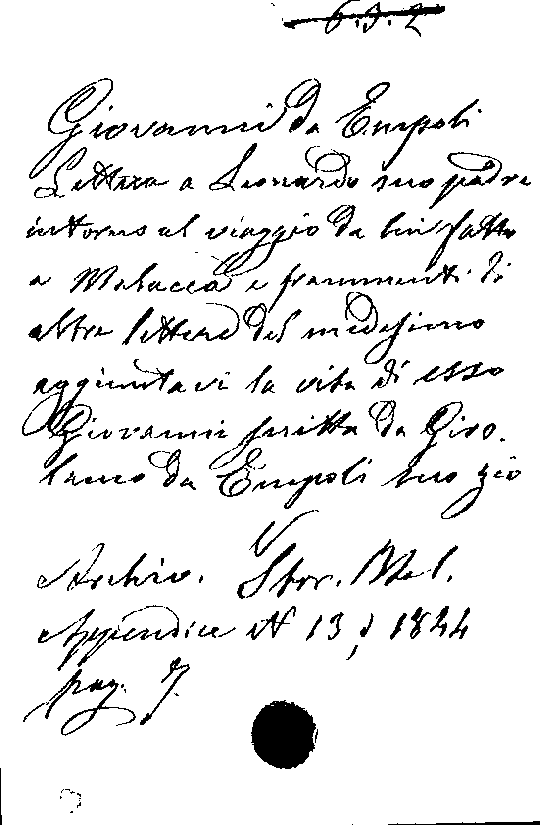 6.9.2
Giovanni da Empoli
Lettera a Leonardo suo padre
intorno al viaggio da lui fatto
a Malacca e frammenti di
altre lettere del medesimo
aggiuntavi la vita di esso
Giovanni scritta da Giro-
lamo da Empoli suo zio
Archiv. Stor. Ital.
Appendice N 13, 1844
pag. 7.